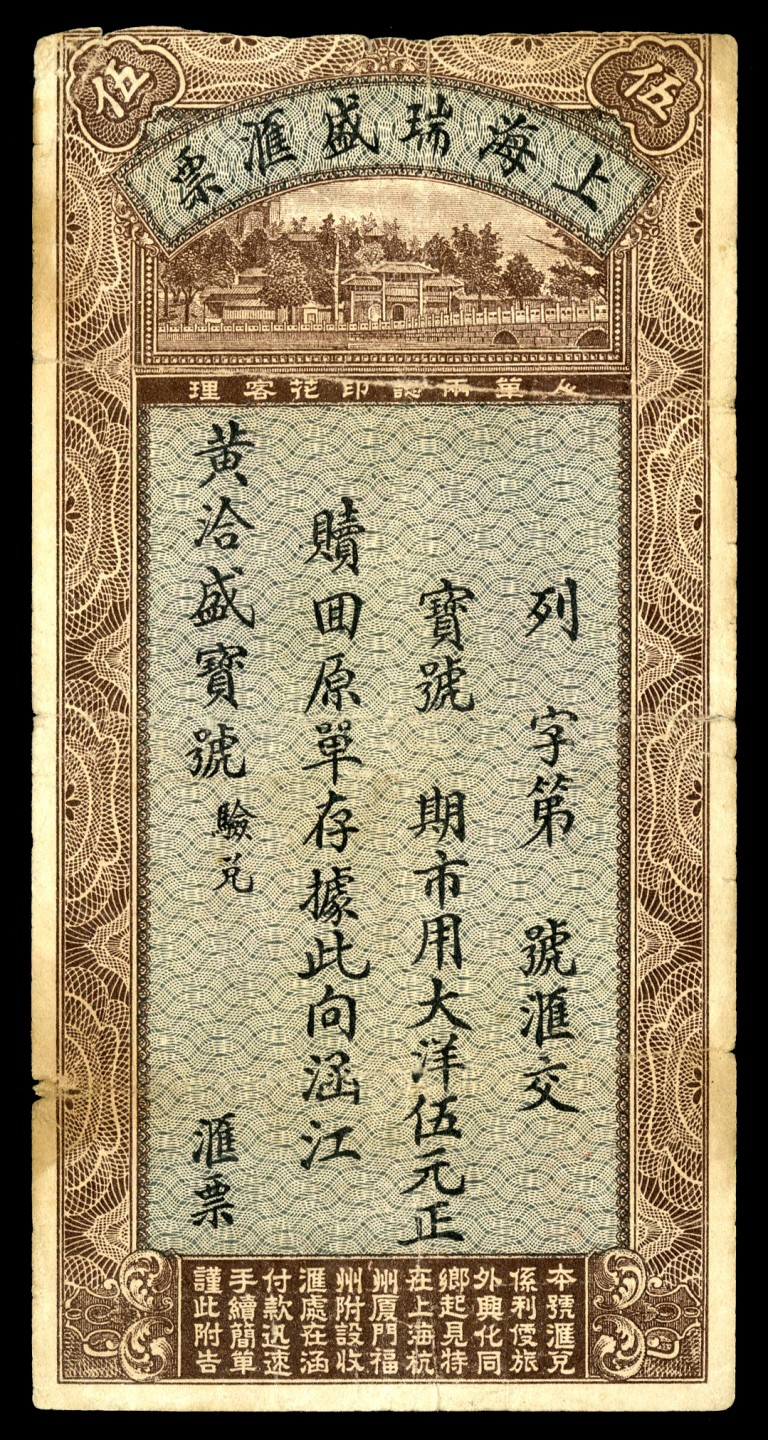 伍
伍
上海瑞盛滙票
單兩認印花客理
列字第 號滙交
寶號 期市用大洋伍元正
贖回原單存據此向涵江
黃洽盛寶號驗兌 滙票
本號滙兌
係利便旅
外興化同
鄉起見特
在上海杭
州厦門福
州附設收
滙處在涵
付款迅速
手續簡單
謹此附告